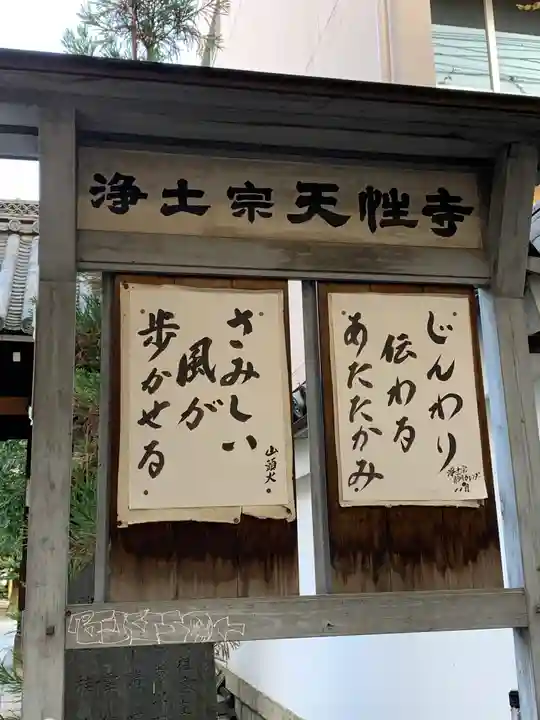 浄土宗天性寺
じんわり
伝わる
あたたかみ
浄土宗
八月
さみしい
風が
歩かせる
山頭火